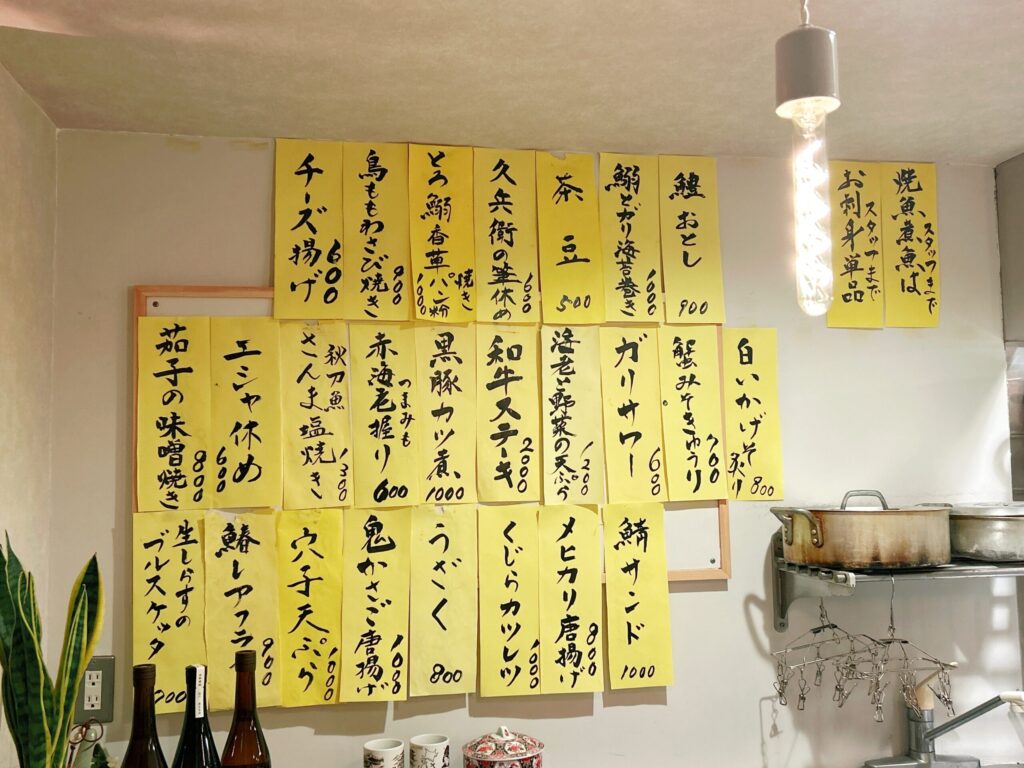 焼魚煮魚は
スタッフまで
お刺身単品
スタッフまで
鱧おとし
900
鰯とガリ海苔巻き
1000
茶豆
500
久兵衛の筆休め
600
とろ鰯香草パン粉焼き
1000
鳥ももわさび焼き
900
チーズ揚げ
600
白いかげそ炙り
800
蟹みそきゅうり
700
ガリサワー
600
海老と野菜の天ぷら
1200
和牛ステーキ
2000
黒豚カツ煮
1000
つまみも
赤海老握り
600
秋刀魚
さんま塩焼き
1300
エシャ休め
600
茄子の味噌焼き
800
鯖サンド
1000
メヒカリ唐揚げ
800
くじらカツレツ
1000
うざく
800
鬼かさご唐揚げ
1000
穴子天ぷら
鰆レアフライ
900
生しらすの
ブルスケッタ
900